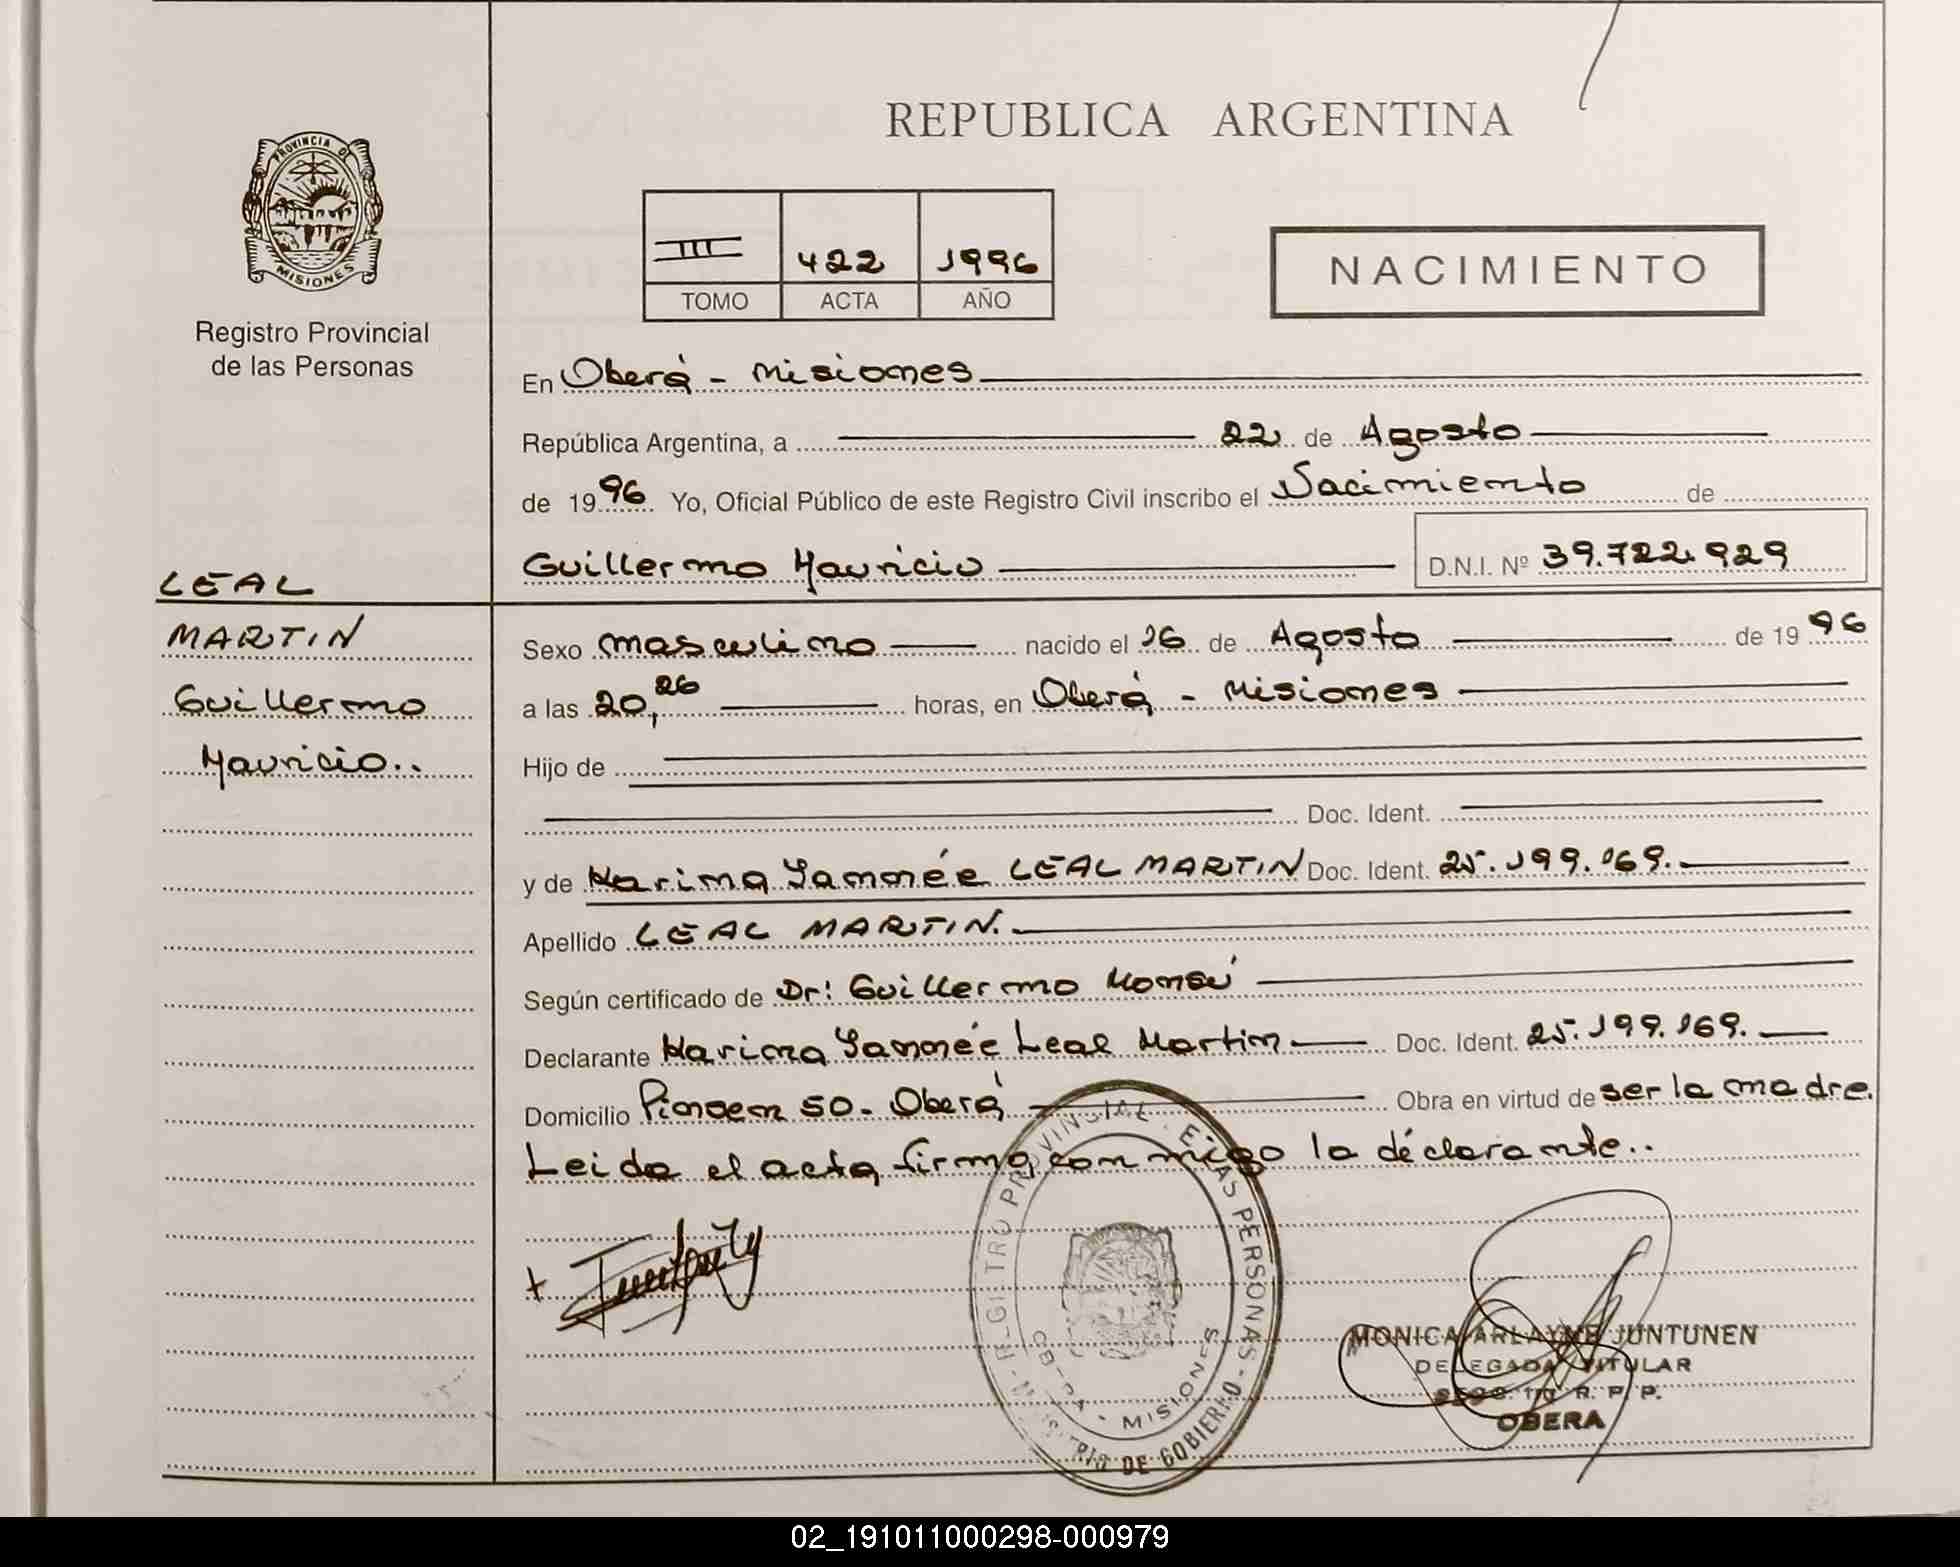 REPUBLICA ARGENTINA
PROVINCIA DE
MISIONES
Registro Provincial
de las Personas
III 422 1996
TOMO ACTA AÑO
NACIMIENTO
En Oberá - Misiones
República Argentina, a 22 de Agosto
de 1996 Yo, Oficial Público de este Registro Civil inscribo el Nacimiento de
Guillermo Mauricio D.N.I. Nº 39.722.929
LEAL
MARTIN
Guillermo
Mauricio..
Sexo masculino nacido el 16 de Agosto de 1996
a las 20,26 horas, en Oberá - Misiones
Hijo de
Doc. Ident.
y de Karina LEAL MARTIN Doc. Ident. 25.199.169.
Apellido LEAL MARTIN.
Según certificado de Dr: Guillermo
Declarante Karina Leal Martin Doc. Ident. 25.199.169.
Domicilio 50- Oberá Obra en virtud de ser la madre.
Leida el acta, firma conmigo la déclarante..
MONICA ARLAYNE JUNTUNEN
DELEGADA TITULAR
R. P. P.
OBERA
PERSONAS
MISIONES
DE GOBIERNO
02_191011000298-000979